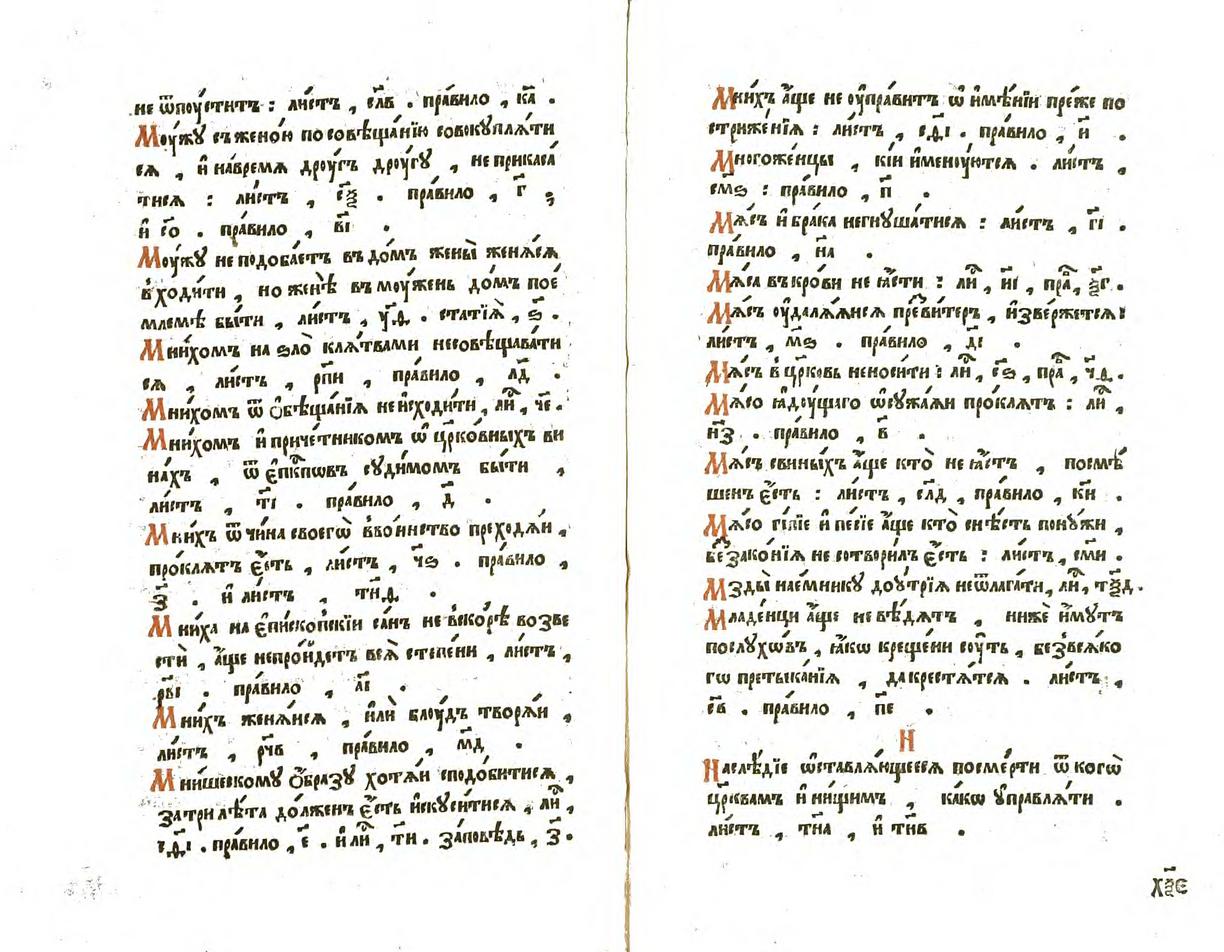 не ѿпоу́ститъ : ли́стъ , сл҃в . пра́вило , ка҃ .
Моу́жу съ жено́ю по совѣща́нїю совокупля́ти
ся , и҆ на́время дроу́гъ дроу́гу , не прикаса́
тися : ли́стъ , с҃ѯ . пра́вило , г҃ ,
и҆ с҃о . пра́вило , в҃і .
Моу́жу не подоба́етъ въ до́мъ жены̀ женя́ся
в̾ходи́ти , но женѣ̀ въ моу́жень до́мъ пое́
млемѣ бы́ти , ли́стъ , у҃д . статїѧ̀ , ѕ҃ .
Мни́хомъ на ѕло̀ кля́твами не совѣщава́ти
ся , ли́стъ , рп҃и , пра́вило , л҃д .
Мни́хомъ ѿ ѻ҆бѣща́нїя не и҆сходи́ти , лиⷭ҇ , ч҃е .
Мни́хомъ и҆ приче́тникомъ ѡ҆ цр҃ко́вныхъ ви
на́хъ , ѿ є҆пⷭ҇кпѡвъ суди́момъ бы́ти ,
ли́стъ , т҃і . пра́вило , д҃ .
Мни́хъ ѿ чи́на своегѡ̀ в̾во́инство преходя́и ,
про́клятъ є҆́сть , ли́стъ , ч҃ѕ . пра́вило ,
з҃ . и҆ ли́стъ , тн҃д .
Мни́ха на є҆пи́скопскїи са́нъ не в̾ско́рѣ возве
стѝ , а҆́ще не про́йдетъ вся̀ сте́пени , ли́стъ ,
рв҃і . пра́вило , а҃і .
Мни́хъ женя́ися , и҆лѝ блоу́дъ творя́и ,
ли́стъ , рч҃в , пра́вило , м҃д .
Мни́шескому ѻ҆́бразу хотя́и сподо́битися ,
за три лѣ́та до́лженъ є҆́сть и҆скуси́тися , лиⷭ҇ ,
с҃ді . пра́вило , е҃ . и҆ лиⷭ҇ , т҃и . за́повѣдь , з҃ .
Мни́хъ а҆́ще не оу҆пра́витъ ѡ҆ и҆мѣ́нїи пре́же по
стриже́нїя : ли́стъ , с҃ді . пра́вило , и҃ .
Многоже́нцы , кі́и и҆менꙋ́ются . ли́стъ ,
см҃ѕ : пра́вило , п҃ .
Мя́съ и҆ бра́ка не гнуша́тися : ли́стъ , г҃і .
пра́вило , н҃а .
Мя́са въ кро́ви не ꙗ҆́сти : лиⷭ҇ , и҃і , праⷡ҇ , ѯ҃г .
Мя́съ оу҆даля́яися пресви́теръ , и҆зве́ржется :
ли́стъ , м҃ѕ . пра́вило , д҃і .
Мя́съ в̾ цр҃ковь не носи́ти : лиⷭ҇ , с҃ѕ , праⷡ҇ , ч҃д .
Мя́со ꙗ҆доу́щаго ѡ҆сужа́яи про́клятъ : лиⷭ҇ ,
н҃з . пра́вило , в҃ .
Мя́съ свины́хъ а҆́ще кто̀ не ꙗ҆́стъ , посмѣ́
шенъ є҆́сть : ли́стъ , сл҃д , пра́вило , к҃и .
а҆́ще кто̀ снѣ́сть по ну́жи ,
беззако́нїя не сотвори́лъ є҆́сть : ли́стъ , см҃и .
Мзды̀ нае́мнику до оу́трїя не ѿлага́ти , лиⷭ҇ , тѯ҃д .
Младе́нцы а҆́ще не вѣ́дятъ , нижѐ и҆́мутъ
по́слухѡвъ , ꙗ҆́кѡ креще́ни соу́ть , безвся́ко
гѡ претыка́нїя , да крестя́тся . ли́стъ ,
с҃в . пра́вило , п҃е .
Н
Наслѣ́дїе ѡ҆ставля́ющееся по сме́рти ѿ когѡ̀
цр҃квамъ и҆ ни́щимъ , ка́кѡ управля́ти .
ли́стъ , тн҃а , и҆ тн҃в .
хѯ҃є